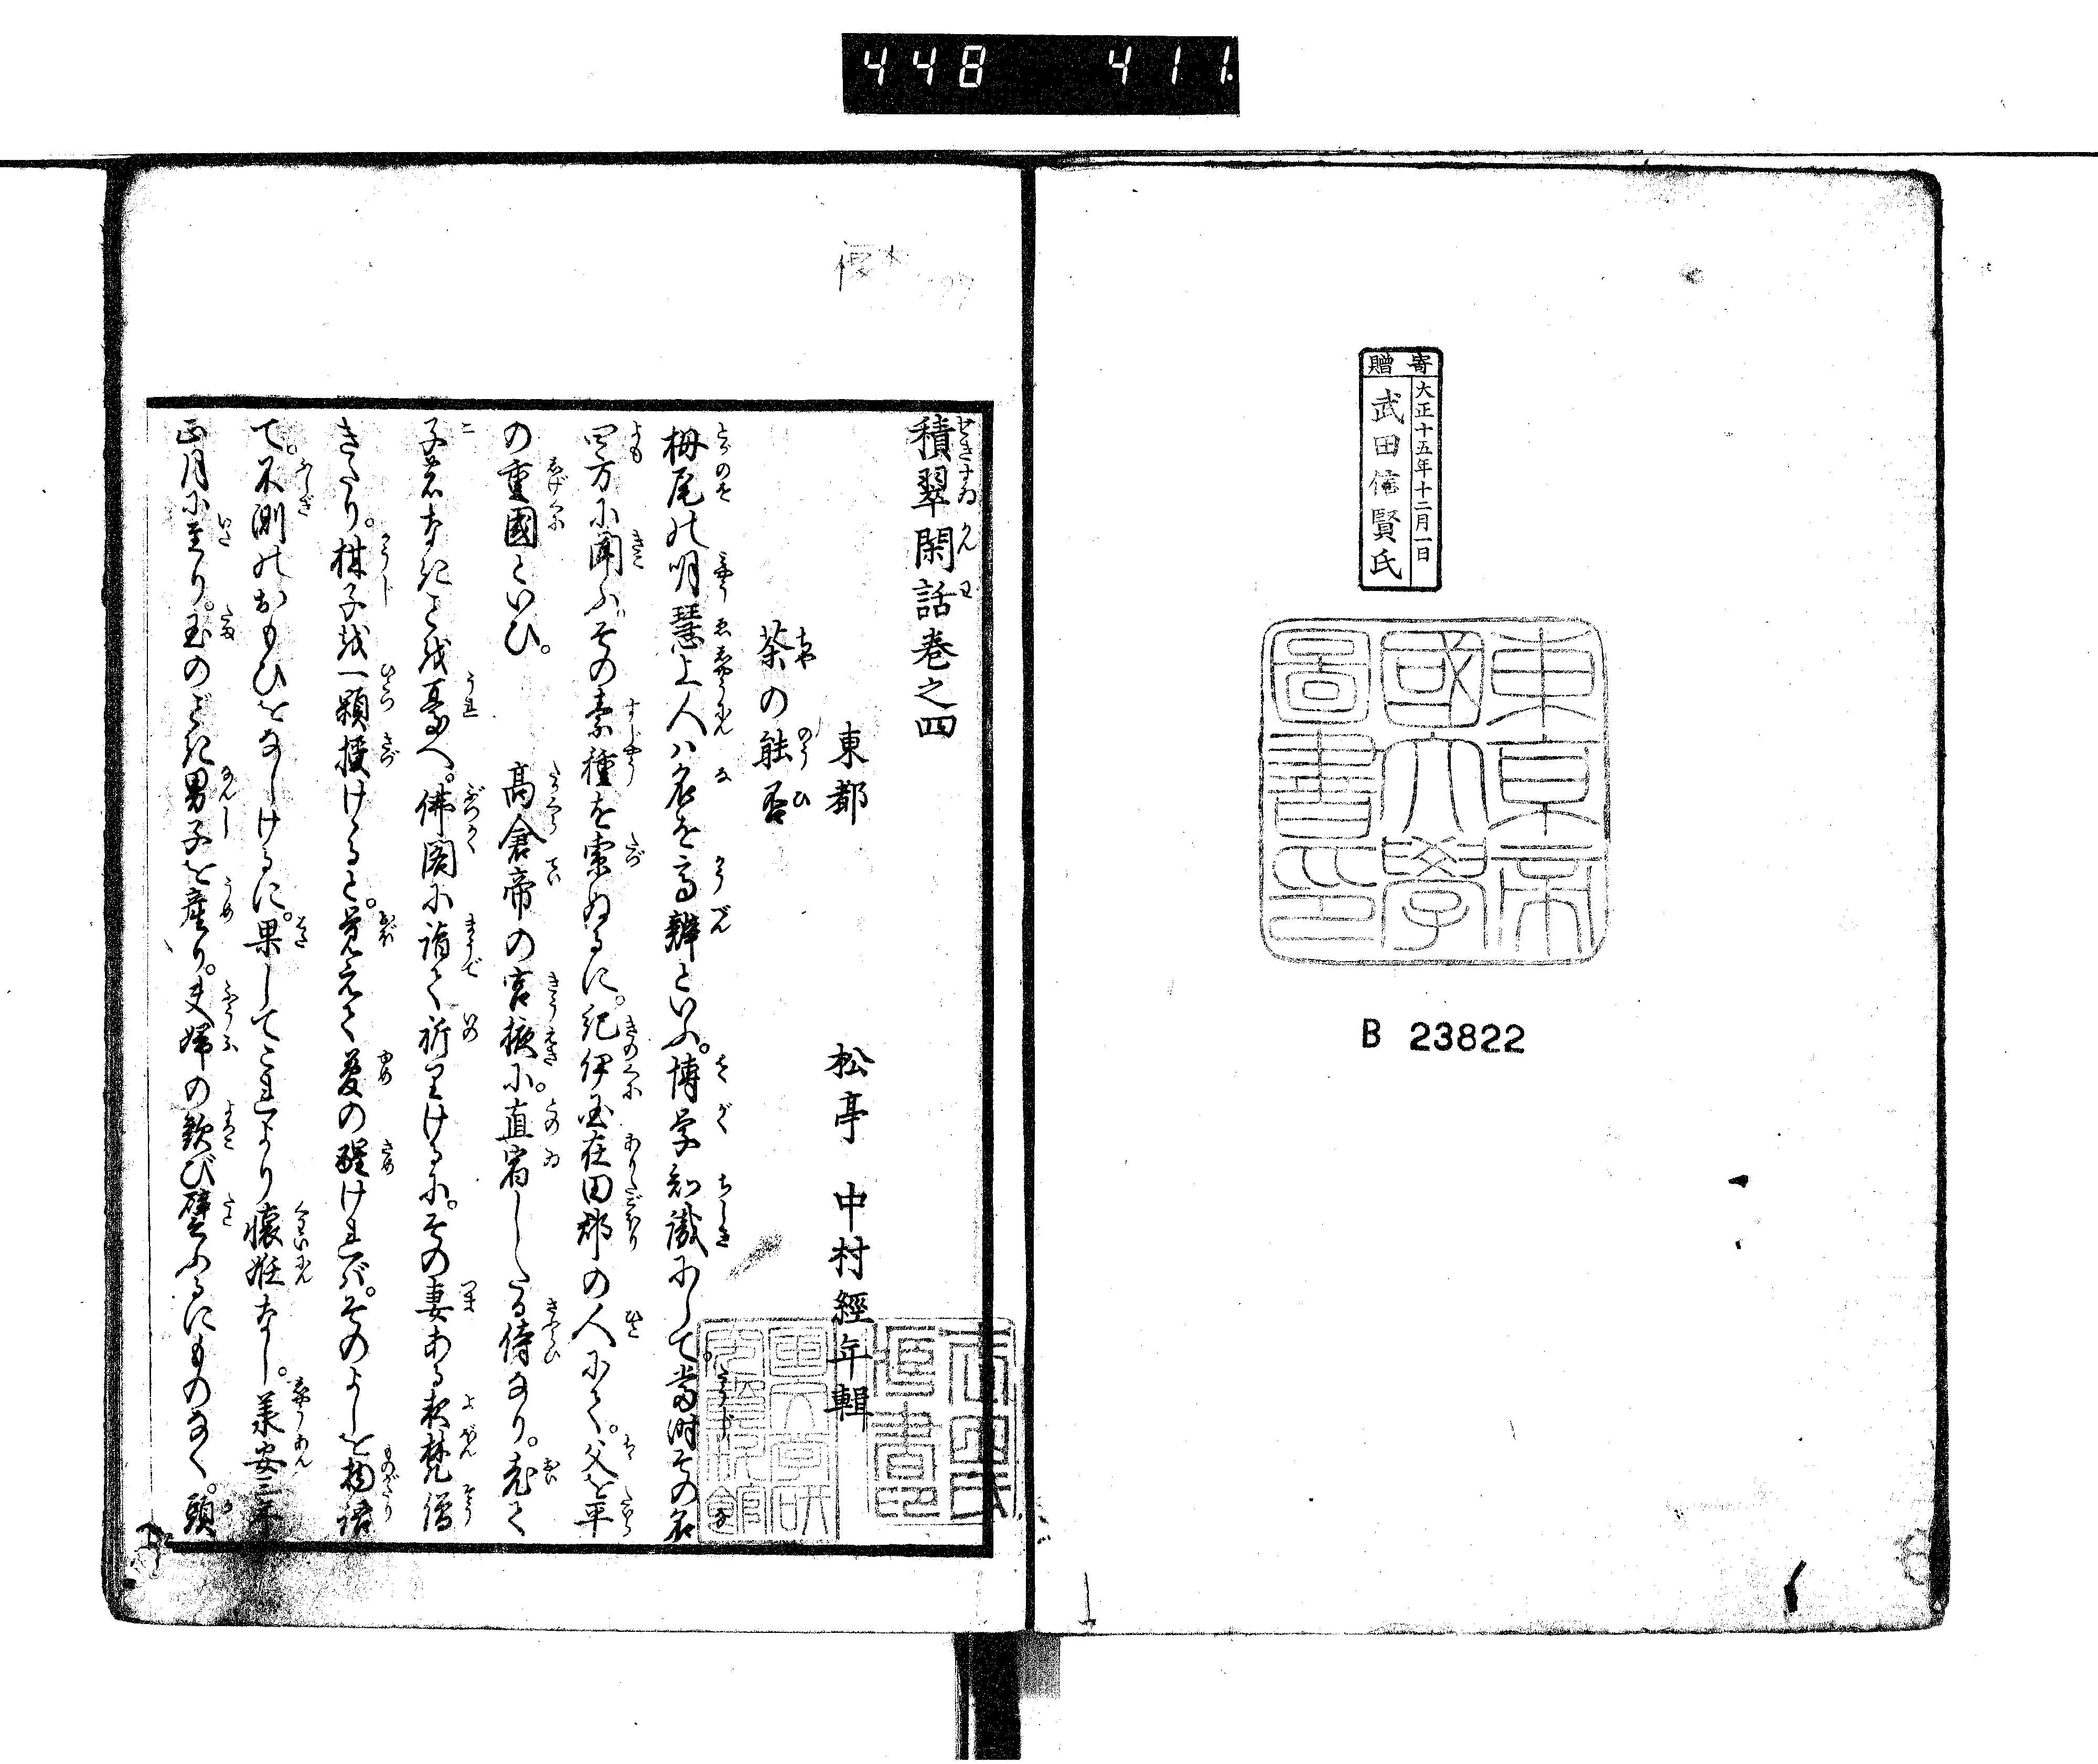 448 411.
寄贈
大正十五年十二月一日
武田信賢氏
東京帝
國大學
圖書印
B 23822
積翠閑話巻之四
東都 松亭 中村經年輯
茶の能否
栂尾の明慧上人ハ名を高辨といふ。博学知識にして。當時その名
四方に聞ふ。その素種を索ぬるに。紀伊国在田郡の人にて。父を平
の重國といひ。 高倉帝の宮掖に。直宿したる侍なり。老て
子なきことを憂へ。佛閣に詣て祈りけるに。その妻ある夜梵僧
きたり。柑子を一顆授けると。覚えて夢の醒ければ。そのよしを物語
て。不測のおもひをなしけるに。果してこれより懐妊なし。承安三年
正月に至り。玉のごとき男子を産り。夫婦の歓び譬ふるにものなく。頭